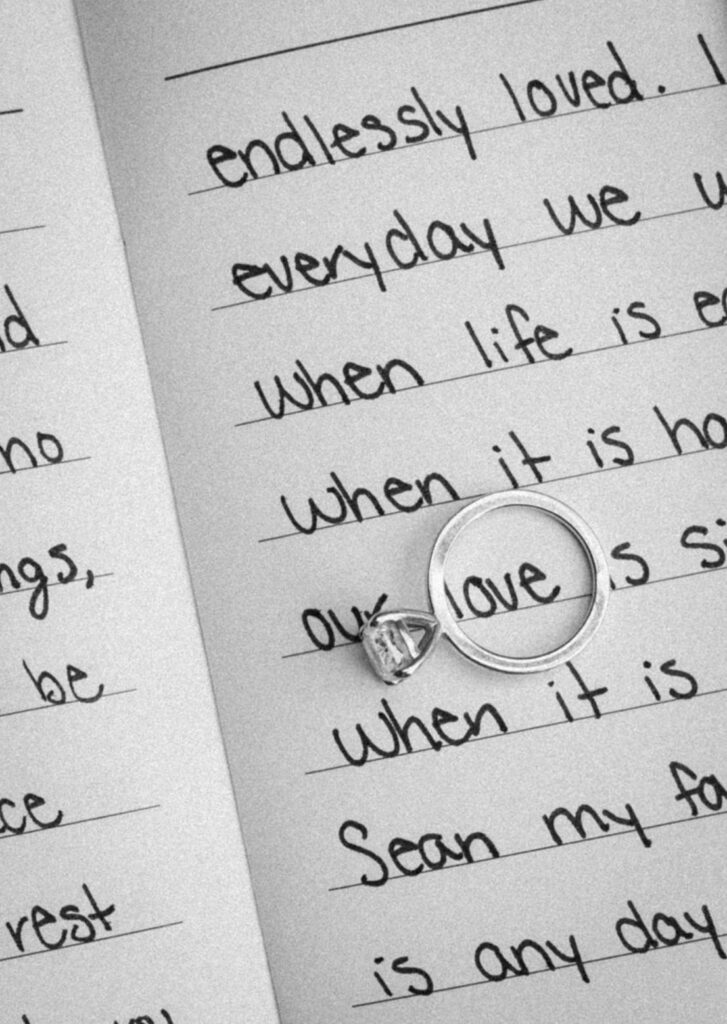 no
be
rest
endlessly loved. I
everyday we
when life is
when it is
our love is
when it is
Sean my
is any day